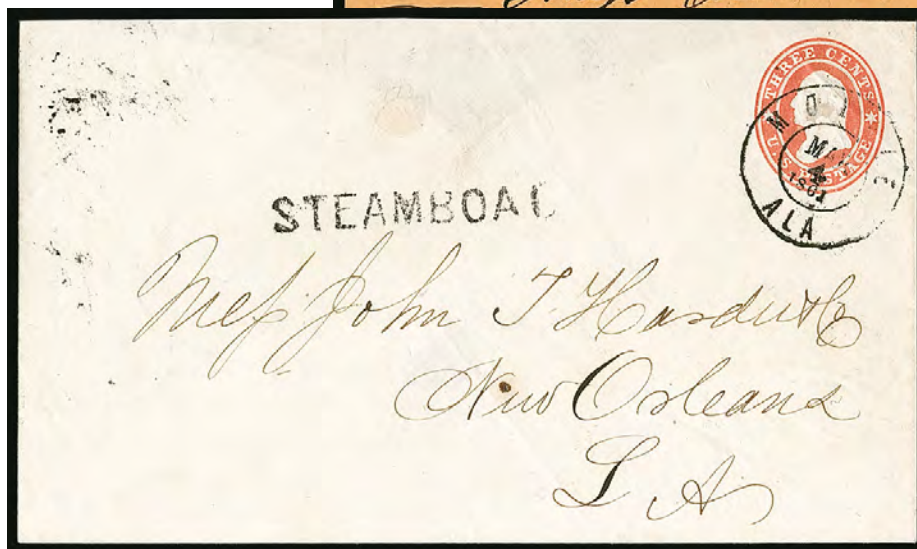 THREE CENTS
U.S. POSTAGE
MOBILE
MAR
4
1861
ALA
STEAMBOAT
Mess John T. Hardie & Co
New Orleans
LA